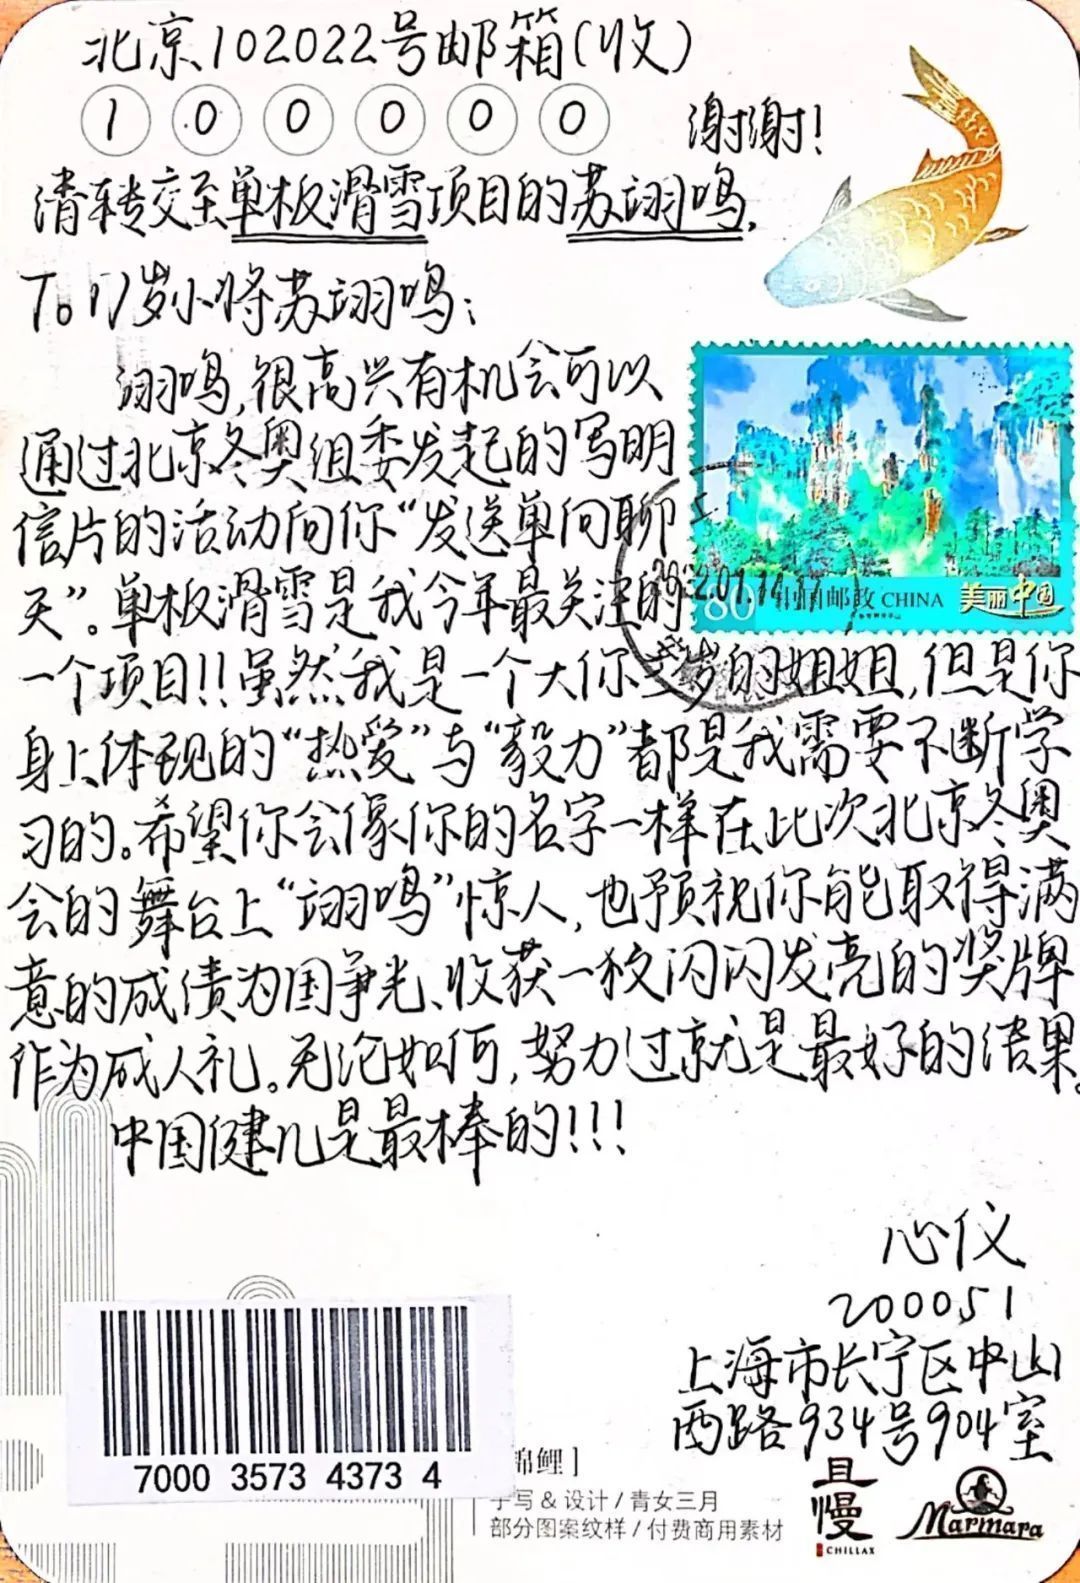 北京102022号邮箱(收)
100000
谢谢!
请转交至单板滑雪项目的苏翊鸣.
To 17岁小将苏翊鸣:
翊鸣,很高兴有机会可以
通过北京冬奥组委发起的写明
信片的活动向你“发送单向聊
天”。单板滑雪是我今年最关注的
一个项目!!虽然我是一个大你 岁的姐姐,但是你
身上体现的“热爱”与“毅力”都是我需要不断学
习的。希望你会像你的名字一样在此次北京冬奥
会的舞台上“翊鸣”惊人,也预祝你能取得满
意的成绩为国争光、收获一枚闪闪发亮的奖牌
作为成人礼。无论如何,努力过就是最好的结果。
中国健儿是最棒的!!!
80 中国邮政 CHINA 美丽中国
2022.01.14
心仪
200051
上海市长宁区中山
西路934号904室
7000 3573 4373 4
锦鲤]
手写 & 设计 / 青女三月
部分图案纹样 / 付费商用素材
且慢
CHILLAX
Marmara